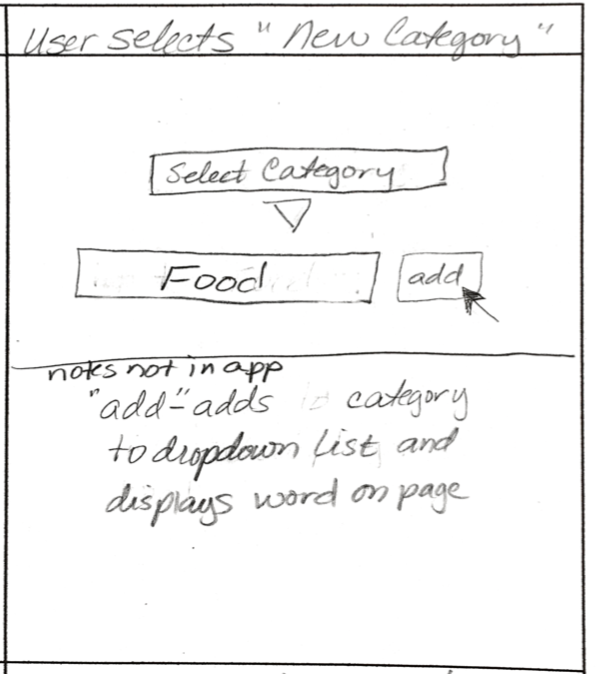 User selects "New Category"
Select Category
Food
add
notes not in app
"add"-adds category
to dropdown list and
displays word on page